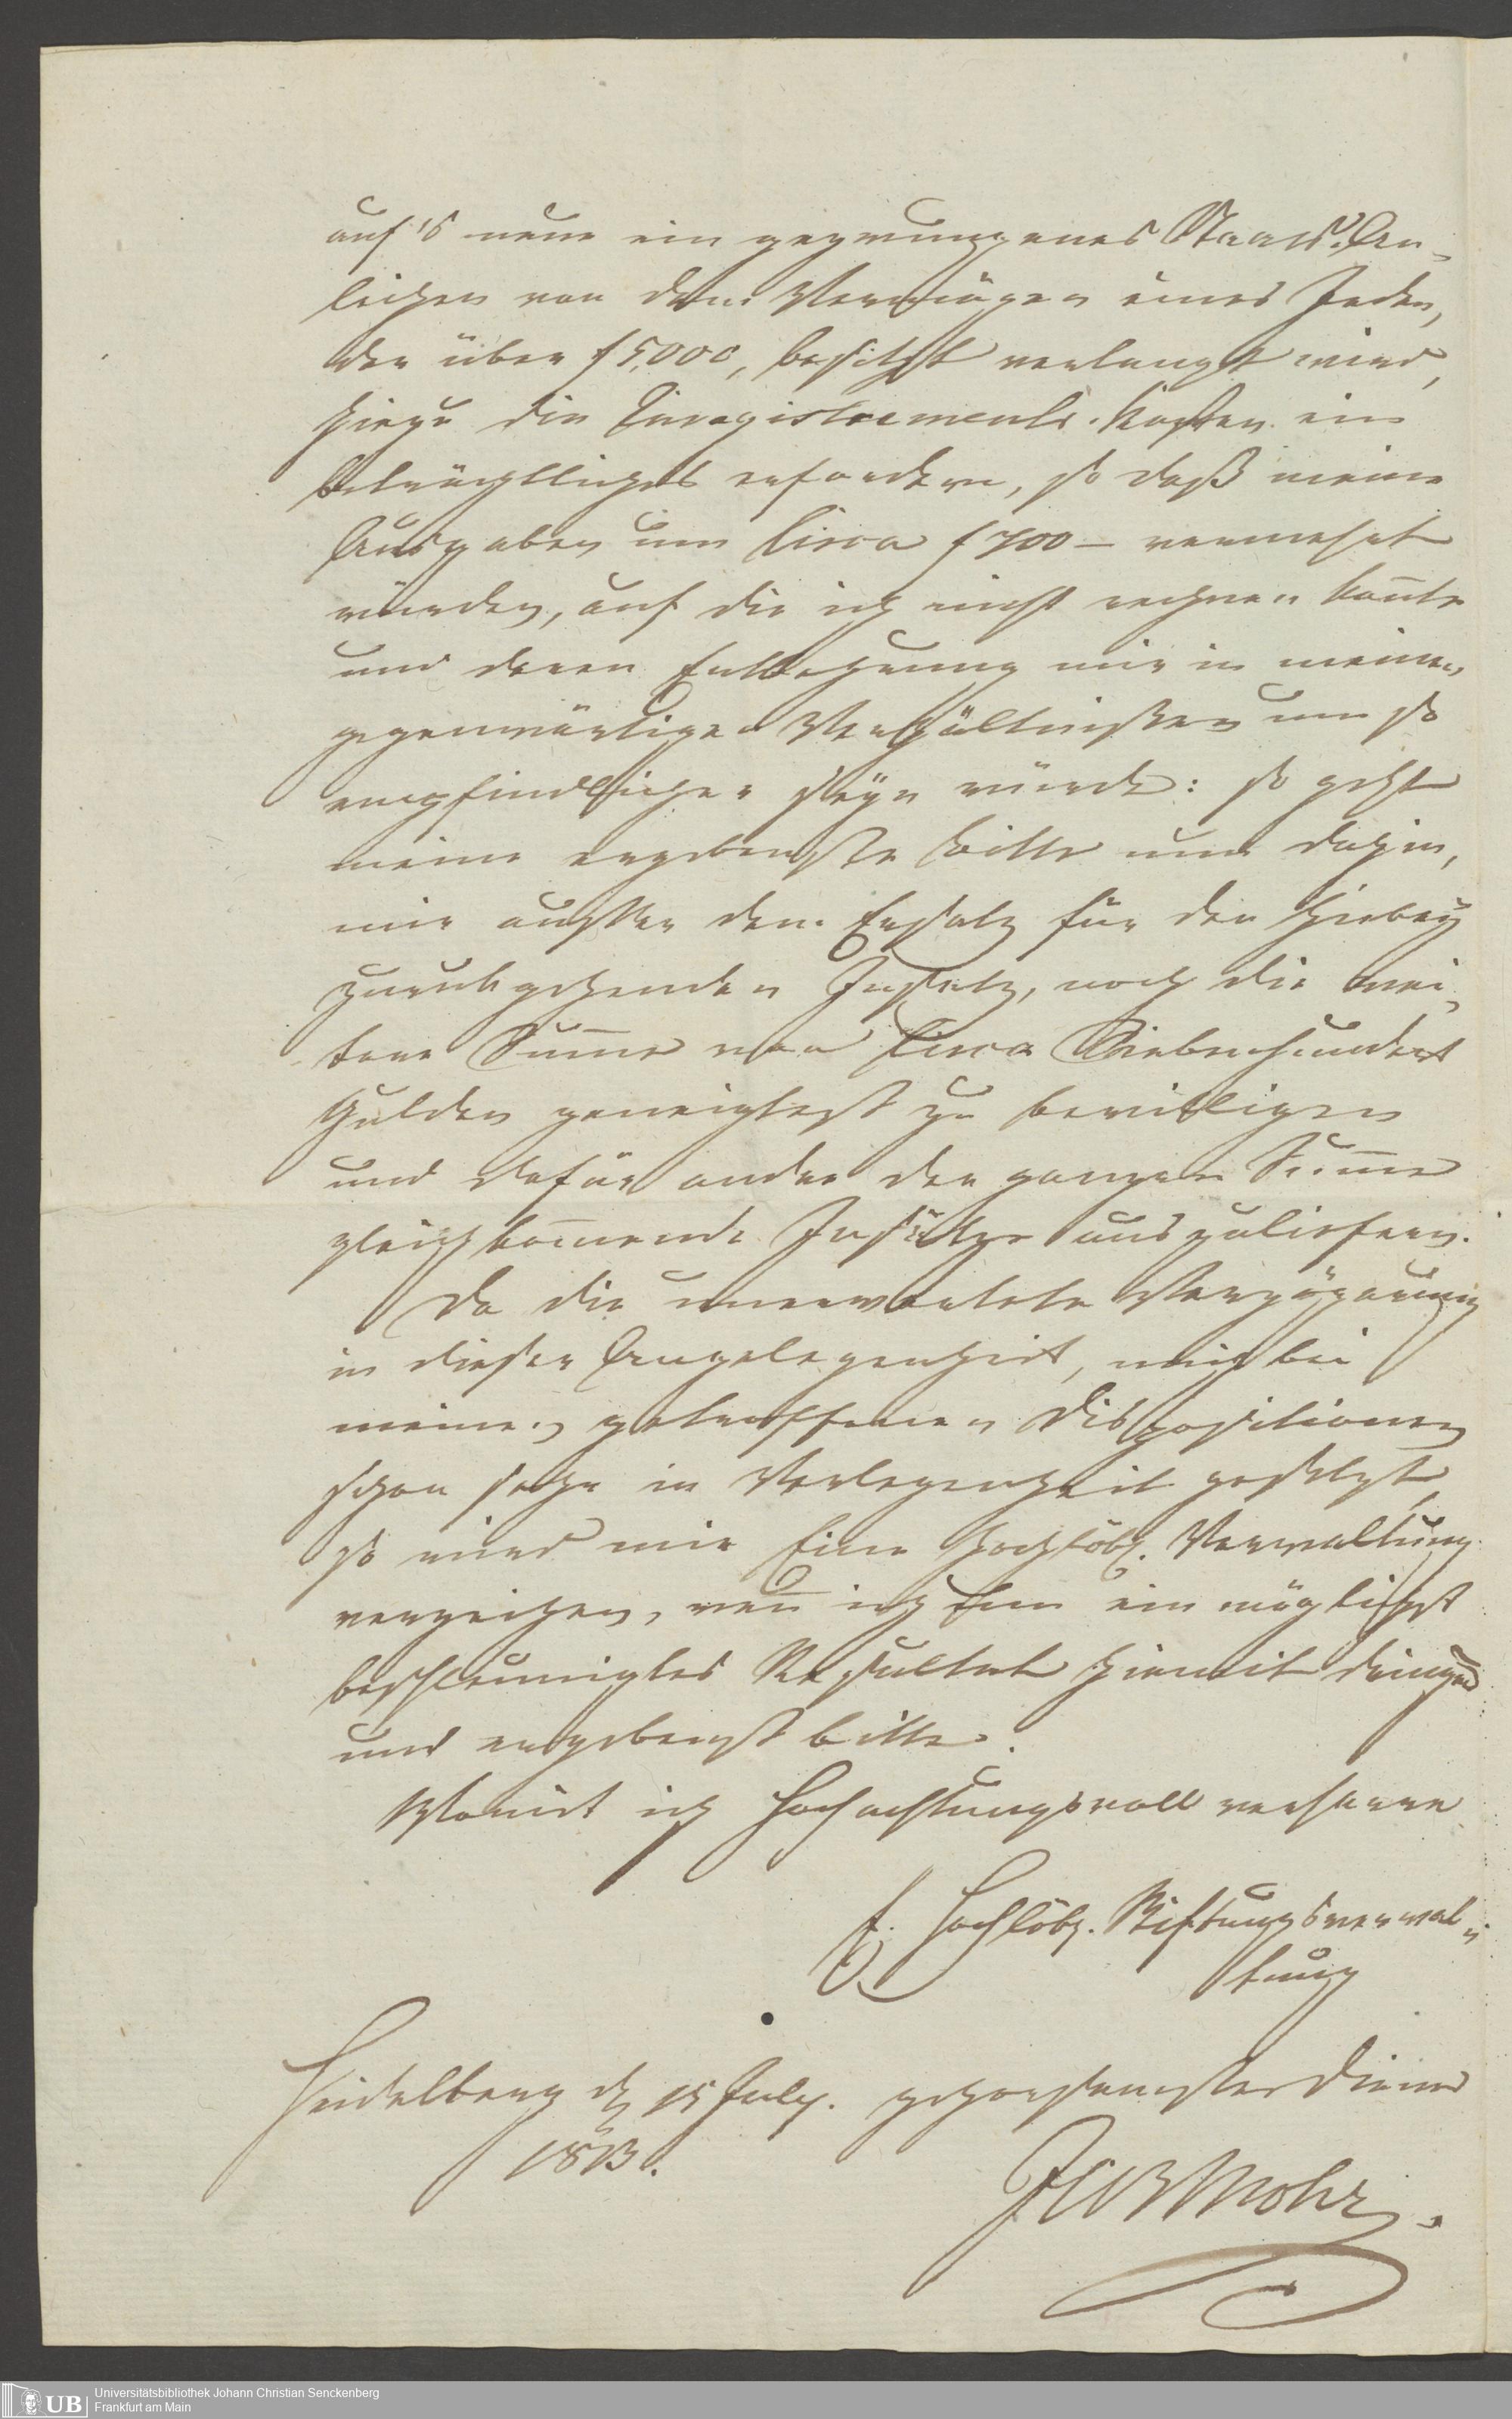 auf's neue ein gezwungenes Staats-An-
leihen von dem Vermögen eines Jeden,
der über f 5,000, besitzt verlangt wird,
hiezu die Enregistrements-Kosten ein
beträchtliches erfordern, so daß meine
Ausgaben um Circa f 700 – vermehrt
würden, auf die ich nicht rechnen konnte
und deren Entbehrung mir in meinen
gegenwärtigen Verhältnißen um so
empfindlicher seyn würde: so geht
meine ergebenste Bitte nun dahin,
mir ausser dem Ersatz für den hiebey
zurückgehenden Insatz, noch die wei-
tere Summe von Circa Siebenhundert
Gulden geneigtest zu bewilligen
und dafür andre der ganzen Summe
gleichkommende Insätze auszuliefern.
Da die unerwartete Verzögerung
in dieser Angelegenheit, mich bei
meinen getroffenen Dispositionen
schon sehr in Verlegenheit gesetzt,
so wird mir Eine Hochlöbl. Verwaltung
verzeihen, wenn ich um ein möglichst
beschleunigtes Resultat hiemit dringend
und ergebenst bitte.
Womit ich Hochachtungsvoll verharre
E. Hochlöbl. Stiftungsverwal-
tung
Heidelberg d 15 July.
1813.
gehorsamster Diener
JCBMohr.
Universitätsbibliothek Johann Christian Senckenberg
Frankfurt am Main
UB